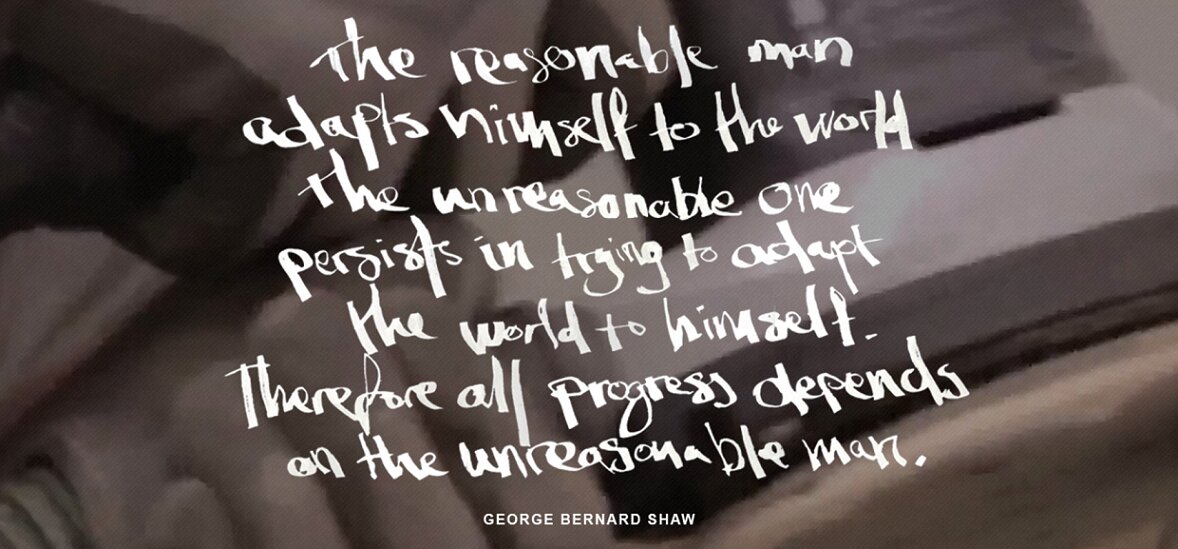 the reasonable man
adapts himself to the world
the unreasonable one
persists in trying to adapt
the world to himself.
Therefore all progress depends
on the unreasonable man.
GEORGE BERNARD SHAW